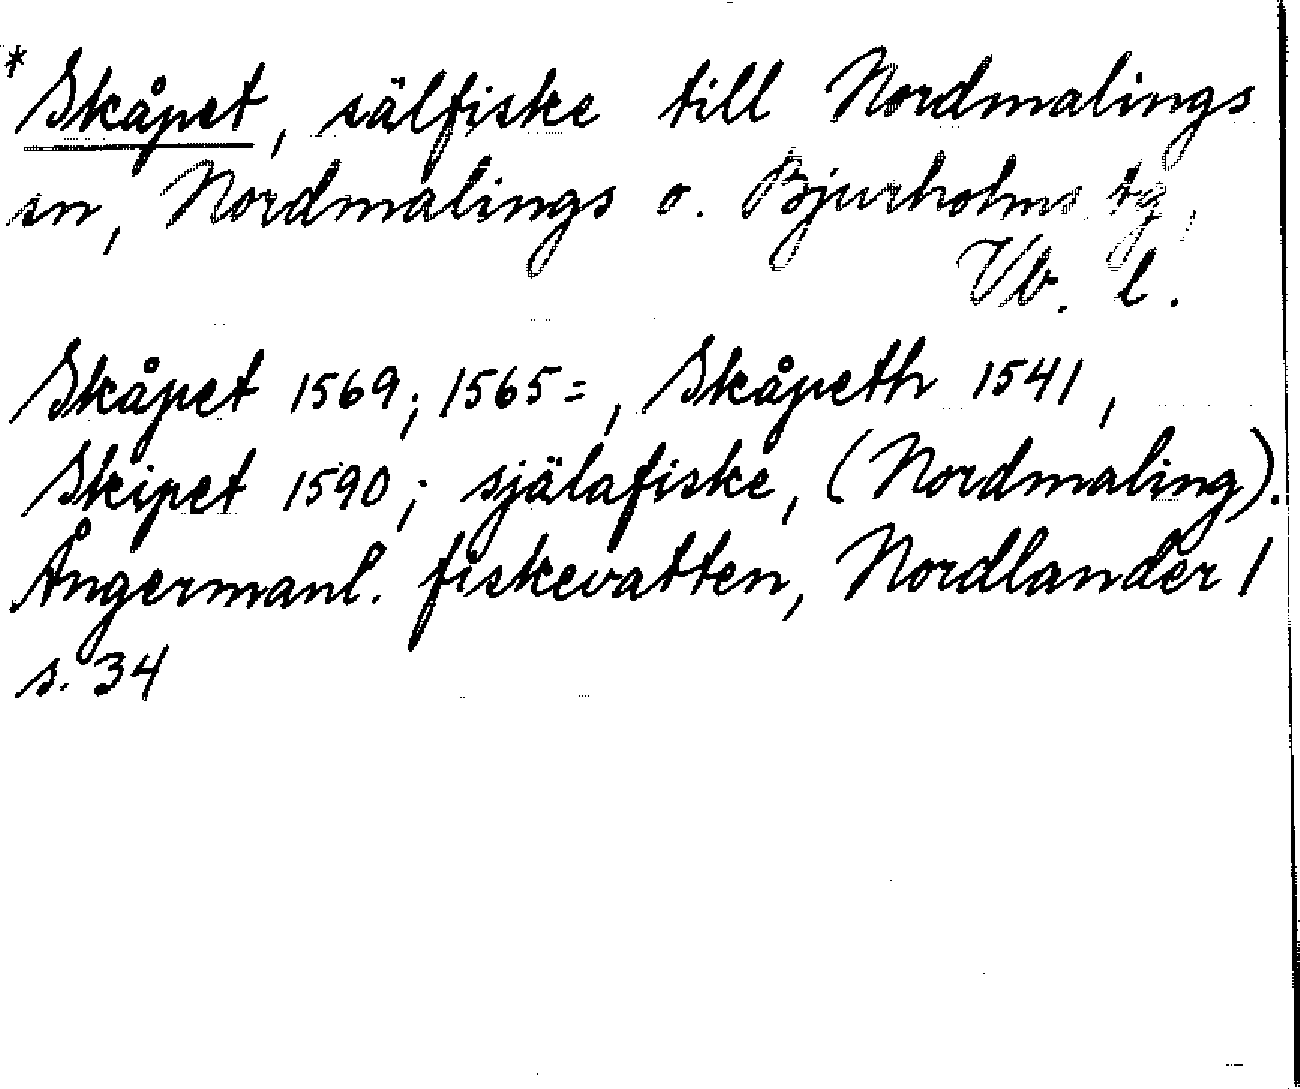 *Skåpet, sälfiske till Nordmalings
sn, Nordmalings o. Bjurholms tg,
Vb. l.
Skåpet 1569; 1565=, Skåpeth 1541,
Skipet 1590; själafiske, (Nordmaling).
Ångermanl. fiskevatten, Nordlander 1
s. 34